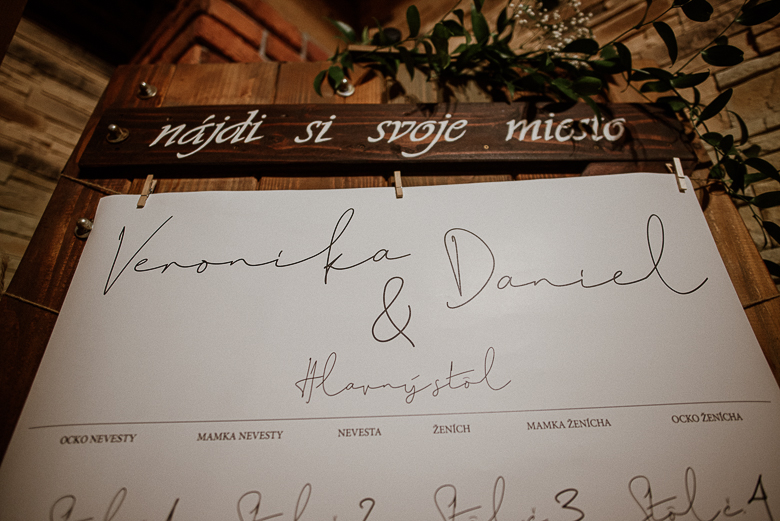 nájdi si svoje miesto
Veronika
& Daniel
Hlavný stôl
OCKO NEVESTY MAMKA NEVESTY NEVESTA ŽENÍCH MAMKA ŽENÍCHA OCKO ŽENÍCHA
Stôl č. 1 Stôl č. 2 Stôl č. 3 Stôl č. 4